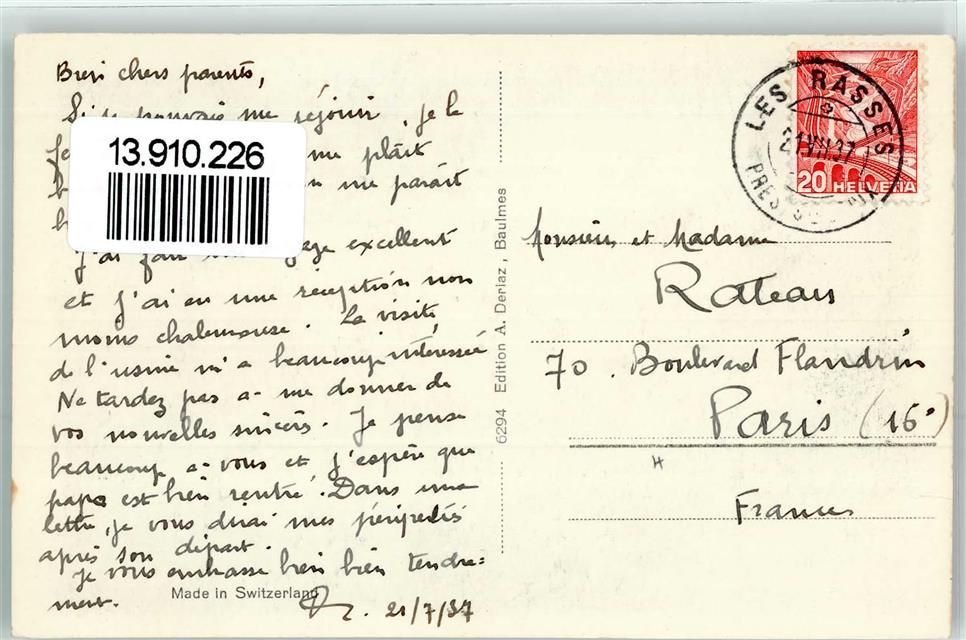 Bien chers parents,
Si me réjouir, je le
me plaît
me paraît
J'ai fait excellent
et j'ai eu une réception non
moins chaleureuse. La visite
de l'usine m'a beaucoup intéressée
Ne tardez pas à me donner de
vos nouvelles sincères. Je pense
beaucoup à vous et j'espère que
papa est bien rentré. Dans une
lettre, je vous dirai mes péripéties
après son départ.
Je vous embrasse bien bien tendre=
ment.
21/7/37
Made in Switzerland
13.910.226
6294 Edition A. Deriaz, Baulmes
LES RASSES
21 VII 37
PRES
20 HELVETIA
Monsieur et Madame
Rateau
70. Boulevard Flandrin
Paris (16e)
France